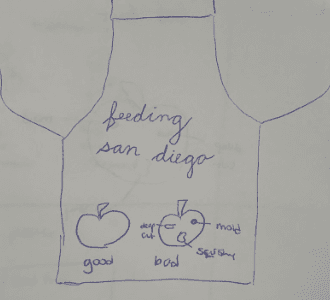 feeding
san diego
deep
cut
mold
squishy
good
bad